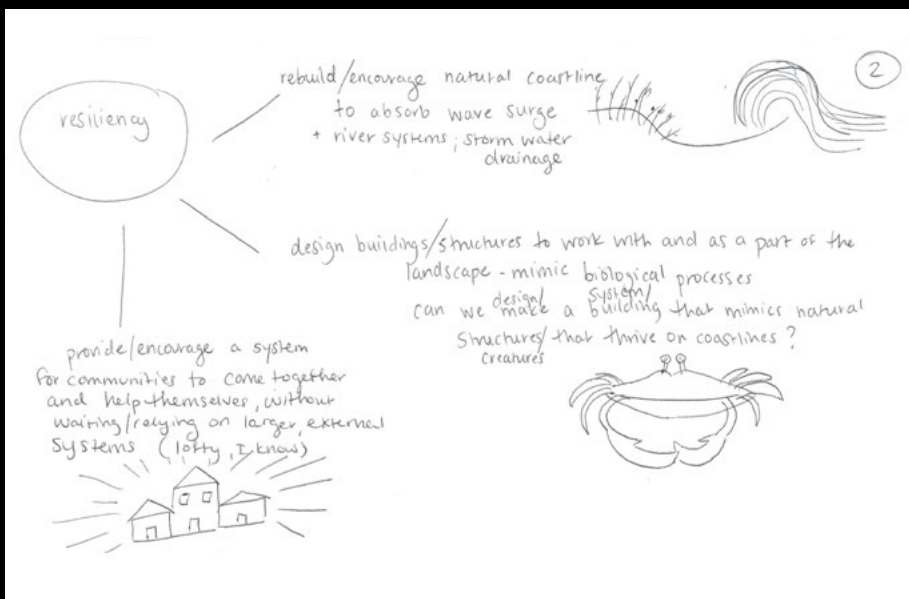 2
resiliency
rebuild/encourage natural coastline
to absorb wave surge
+ river systems; storm water
drainage
design buildings/structures to work with and as a part of the
landscape - mimic biological processes
design/ system/
can we make a building that mimics natural
structures/that thrive on coastlines?
creatures
provide/encourage a system
for communities to come together
and help themselves, without
waiting/relying on larger, external
systems (lofty, I know)